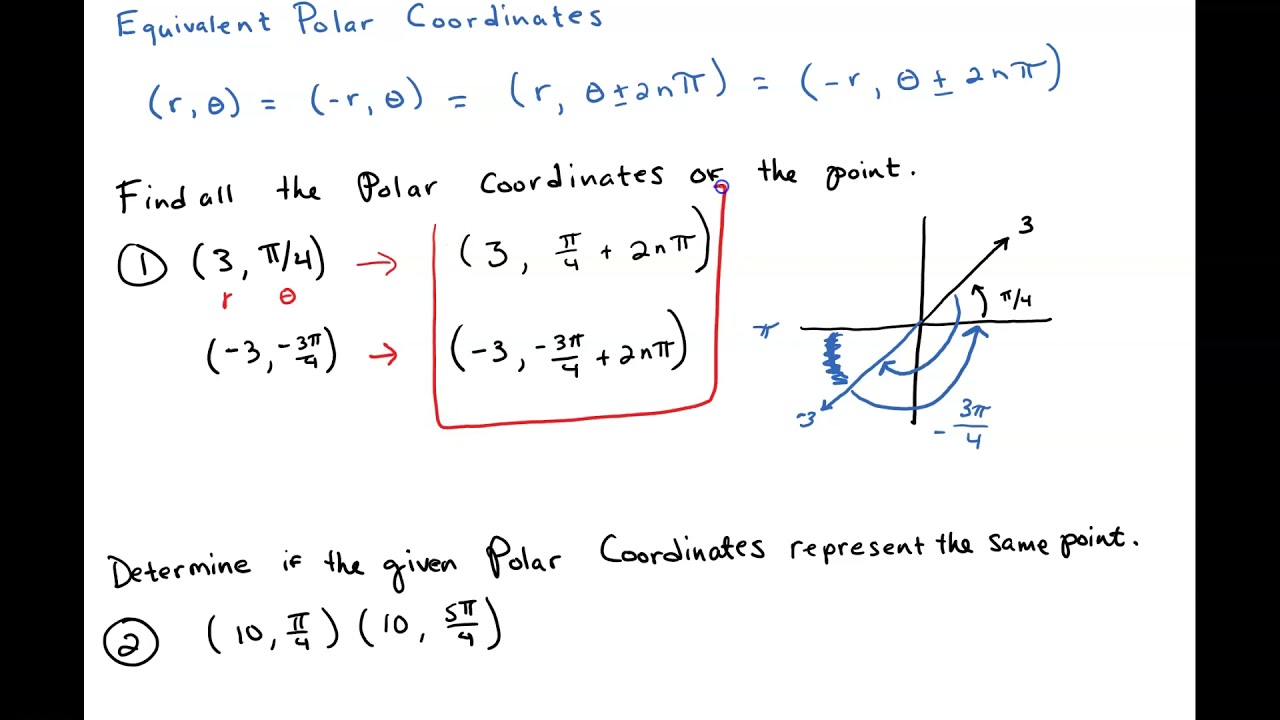 Equivalent Polar Coordinates
(r, θ) = (-r, θ) = (r, θ ± 2nπ) = (-r, θ ± 2nπ)
Find all the Polar Coordinates of the point.
① (3, π/4) → (3, π/4 + 2nπ)
r θ
(-3, -3π/4) → (-3, -3π/4 + 2nπ)
3
π/4
π
-3
- 3π/4
Determine if the given Polar Coordinates represent the same point.
② (10, π/4) (10, 5π/4)